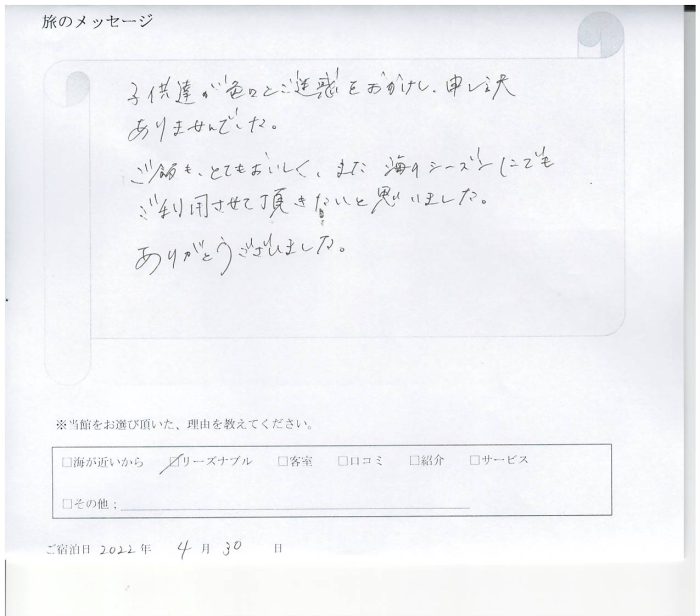 旅のメッセージ
子供達が色々とご迷惑をおかけし、申し訳
ありませんでした。
ご飯も、とてもおいしく、また海のシーズンにでも
ご利用させて頂きたいと思いました。
ありがとうございました。
※当館をお選び頂いた、理由を教えてください。
□海が近いから □リーズナブル □客室 □口コミ □紹介 □サービス
□その他：
ご宿泊日 2022年 4月 30 日